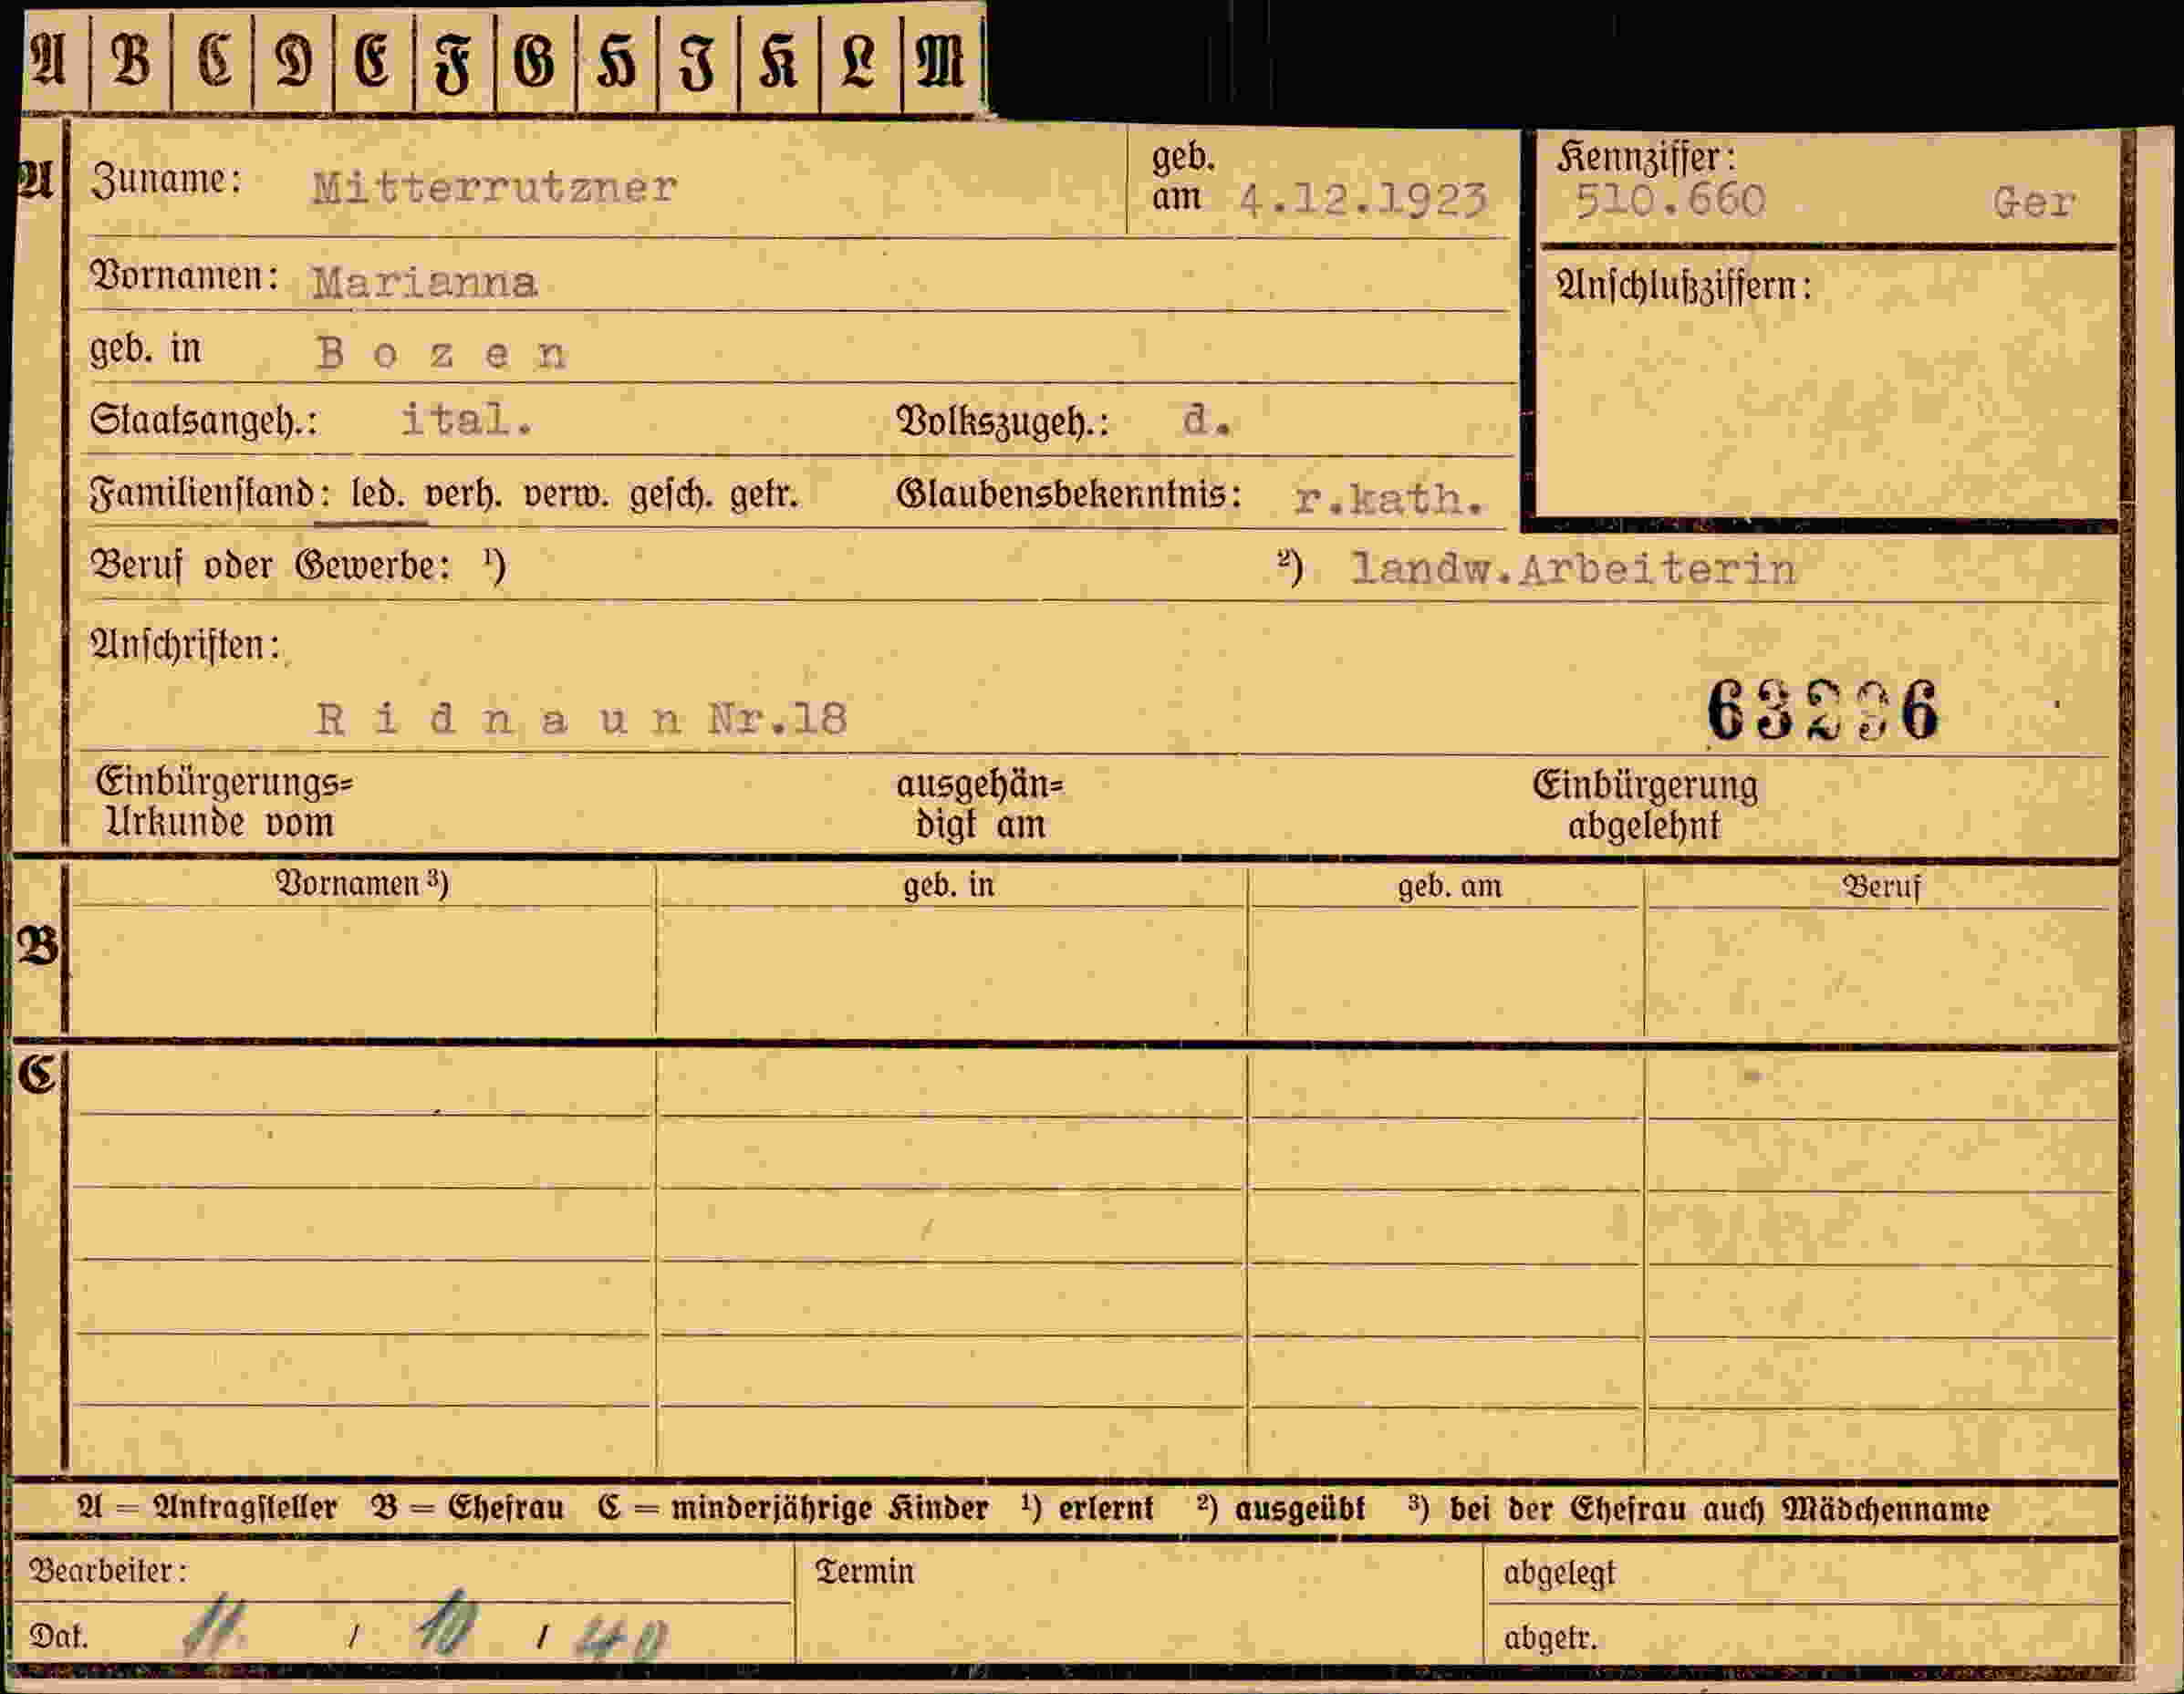 A B C D E F G H I K L M
A Zuname: Mitterrutzner geb. am 4.12.1923 Kennziffer: 510.660 Ger
Vornamen: Marianna Anschlußziffern:
geb. in Bozen
Staatsangeh.: ital. Volkszugeh.: d.
Familienstand: led. verh. verw. gesch. getr. Glaubensbekenntnis: r.kath.
Beruf oder Gewerbe: ¹) ²) landw.Arbeiterin
Anschriften:
Ridnaun Nr.18 63296
Einbürgerungs= ausgehän= Einbürgerung
Urkunde vom digt am abgelehnt
Vornamen ³) geb. in geb. am Beruf
B
C
A = Antragsteller B = Ehefrau C = minderjährige Kinder ¹) erlernt ²) ausgeübt ³) bei der Ehefrau auch Mädchenname
Bearbeiter: Termin abgelegt
Dat. 11. / 10 / 40 abgetr.